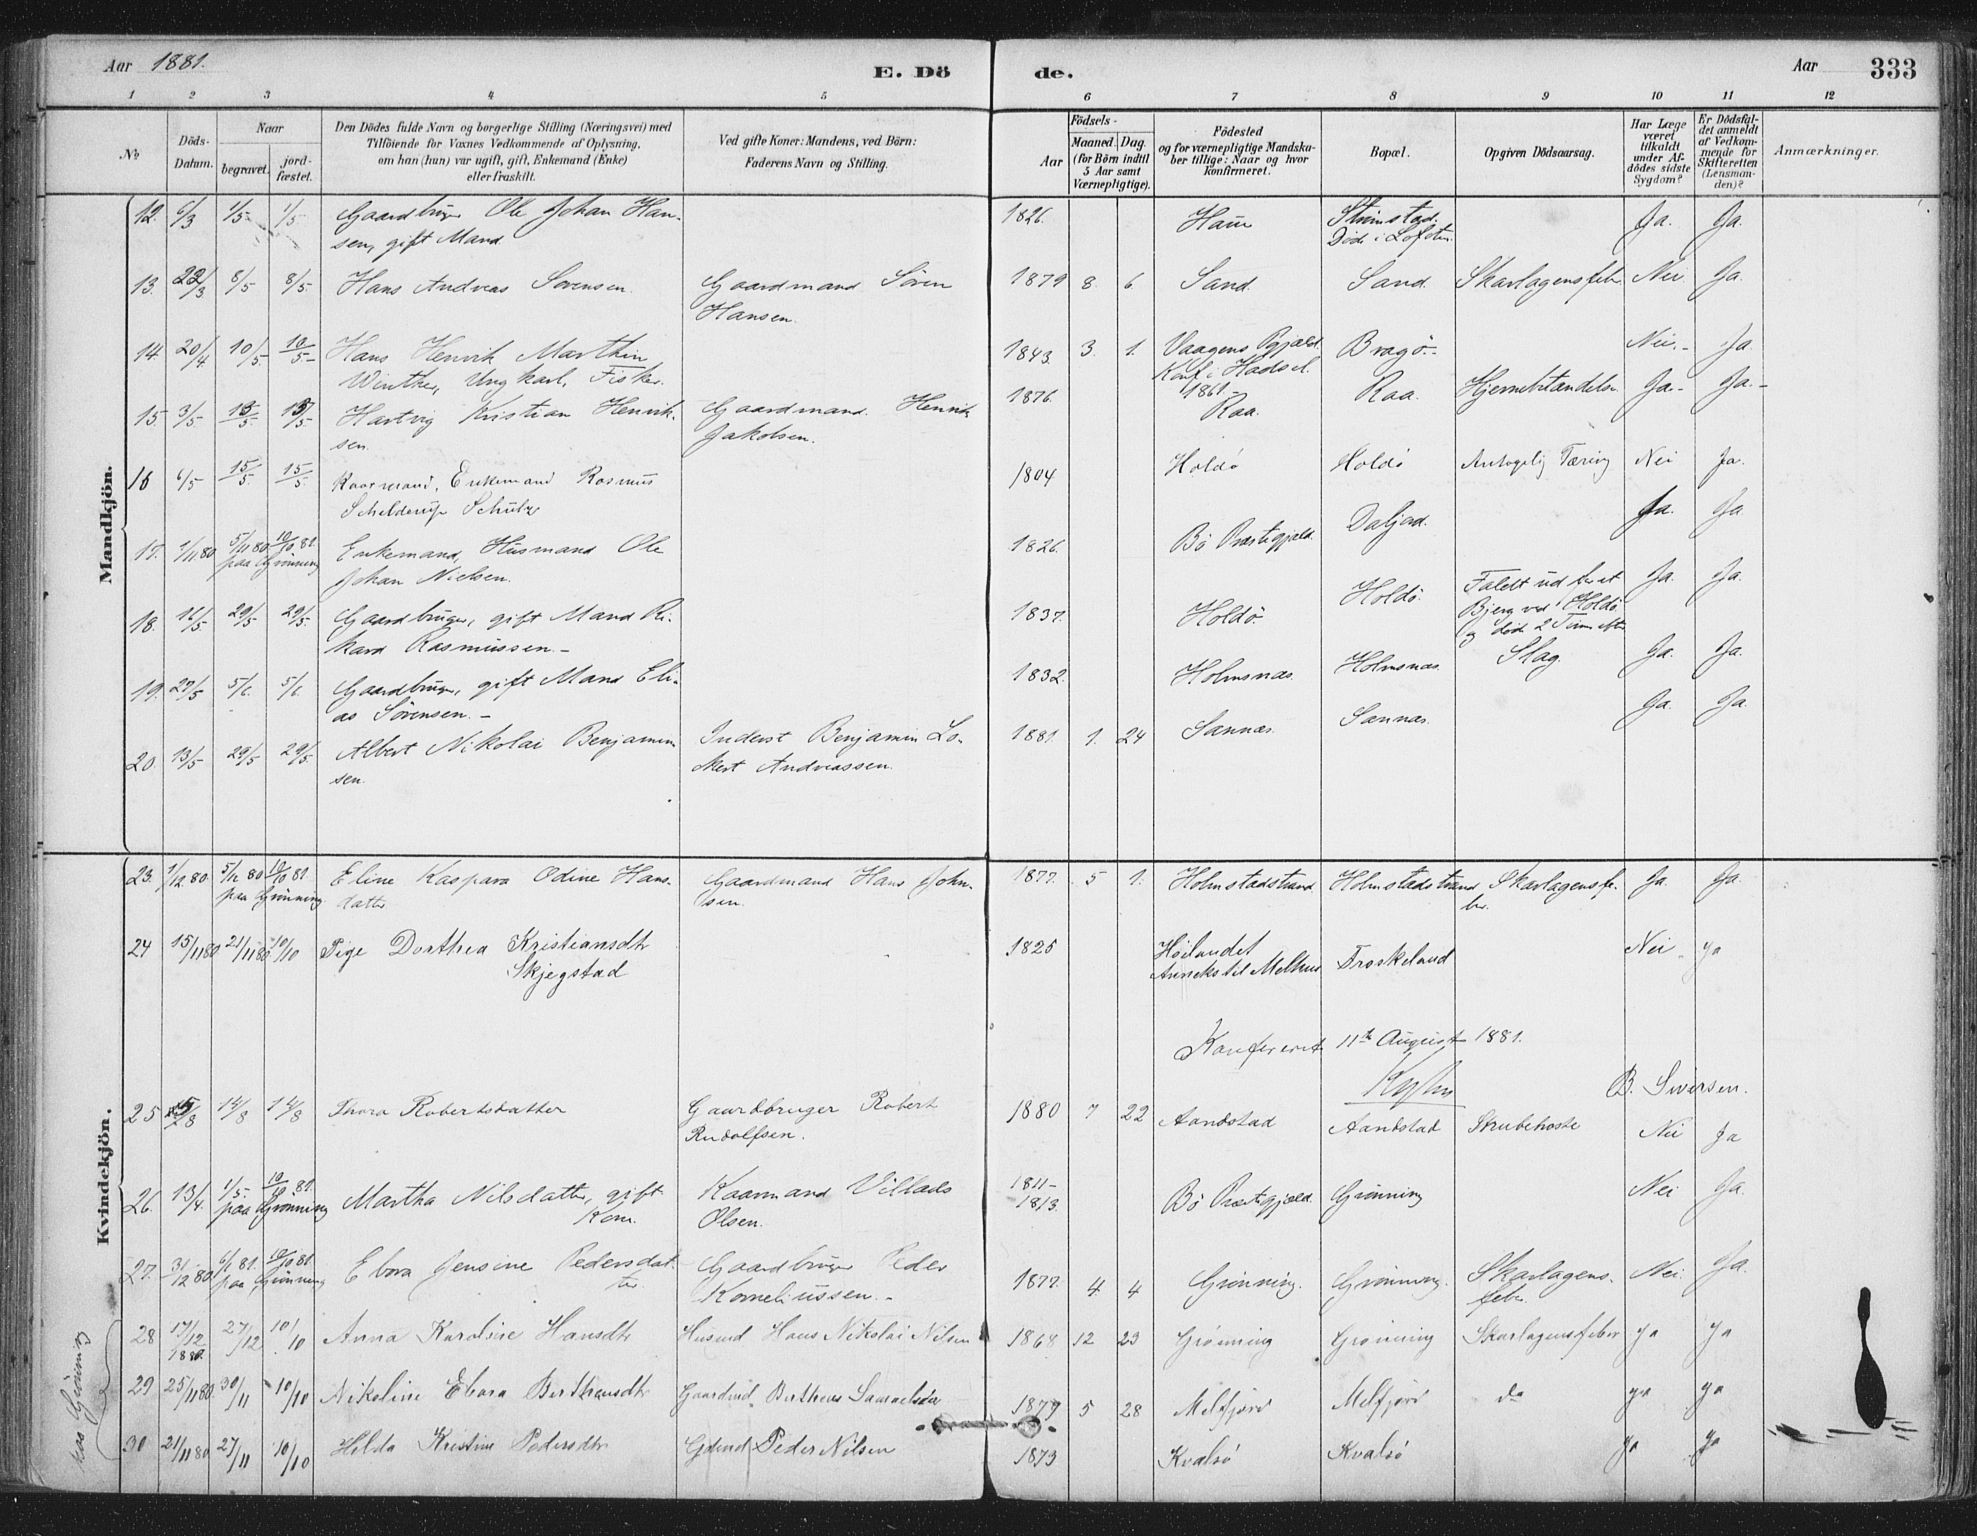 Aar 1881.
E. Dö
de.
Aar
333
1 2 3 4 5 6 7 8 9 10 11 12
No
Döds-Datum.
Naar
begravet.
jord-fæstet.
Den Dödes fulde Navn og borgerlige Stilling (Næringsvei) med
Tilföiende for Voxnes Vedkommende af Oplysning,
om han (hun) var ugift, gift, Enkemand (Enke)
eller fraskilt.
Ved gifte Koner: Mandens, ved Börn:
Faderens Navn og Stilling.
Födsels-
Aar
Maaned.
Dag.
(for Börn indtil
5 Aar samt
Værnepligtige).
Födested
og for værnepligtige Mandska-
ber tillige: Naar og hvor
konfirmeret.
Bopæl.
Opgiven Dödsaarsag.
Har Læge
været
tilkaldt
under Af-
dödes sidste
Sygdom?
Er Dödsfal-
det anmeldt
af Vedkom-
mende for
Skifteretten
(Lensman-
den)?
Anmærkninger.
Mandkjön.
12. 6/3 1/5 1/5 Gaardbruger Ole Johan Han-
sen, gift Mand 1826. Ja. Ja.
Død i Lofoten.
13. 22/3 8/5 8/5 Hans Andreas Sørensen. Gaardmand Søren
Hansen. 1879 8. 6. Sand. Sand. Skarlagensfeber Nei Ja.
14. 20/4 10/5 10/5 Hans Henrik Marthin
Winther, Ungkarl, Fisker. 1843. 3. 1. Vaagens Pgjæld.
Konf. i Hadsel.
1861. Bragø. Nei. Ja.
15. 3/5 13/5 13/5 Hartvig Kristian Henrik-
sen. Gaardmand Henrik
Jakobsen. 1876. Raa. Raa. Hjernebetændelse Ja. Ja.
16 6/5 15/5 15/5 Kaarmand, Enkemand Rasmus
Schelderup Schultz 1804 Holdö Holdö Antagelig Tæring Nei Ja.
17. 5/11 80 10/10 81.
paa Grönning
Enkemand, Husmand Ole
Johan Nielsen. 1826. Bö Præstegjæld. Ja. Ja
18. 16/5 29/5 29/5. Gaardbruger, gift Mand Ri-
kard Rasmussen. 1837. Holdö. Holdö. Faldt ud for et
Bjerg ved Holdö
og döde 2 Timer efter Ja. Ja.
19. 5/6 5/6 Gaardbruger, gift Mand Eli-
as Sørensen. 1832. Holmsnas. Holmsnas. Slag. Ja. Ja.
20. 13/5 29/5 29/5. Albert Nikolai Benjamin-
sen. Inderst Benjamin Lo-
kert Andreassen. 1881. 1. 24 Sannas. Sannas. Ja. Ja.
Kvindekjön.
23. 1/12 80. 5/12 80 10/10 81
paa Grönning
Eline Kaspara Odine Hans-
datter Gaardmand Hans John-
sen. 1877. 5 1. Holmstadstrand Holmstadstrand Skarlagensfe-
ber. Ja. Ja.
24 15/11 80 21/11 80 10/10 Pige Dorthea Kristiansdtr
Skjegstad 1825 Høilandet
Anneks til Melhus Froskeland Nei Ja
Konfereret 11te August 1881.
B. Sivertsen.
25 14/8 14/8 Thora Robertsdatter Gaardbruger Robert
Rudolfsen. 1880 7 22 Aandstad Aandstad Skrubehoste Nei Ja
26. 13/4. 1/5. 10/10 81.
paa Grönning
Martha Nilsdatter, gift
Kone. Kaarmand Villads
Olsen. 1811-
1813. Bö Præstegjæld. Grönning Nei Ja.
27. 31/12 80. 6/1 81. 10/10 81.
paa Grönning
Ebora Jensine Pedersdat-
ter. Gaardbruger Peder
Korneliussen. 1877. 4 4 Grönning. Grönning. Skarlagens-
feber. Nei. Ja.
28 17/12 1880. 27/12 10/10 Anna Karoline Hansdtr Husmd Hans Nikolai Nilsen 1868 12 23 Grönning Grönning Skarlagensfeber ja ja
29 25/11 80 30/11 10/10 Nikoline Ebora Berthensdtr Gaardmd. Bertheus Samuelsen 1879 5 28 Melfjord Melfjord do ja ja
30 21/11 80 27/11 10/10 Hilda Kristine Pedersdtr Gdmd Peder Nilsen 1873 Kvalsö Kvalsö ja ja
paa Grönning